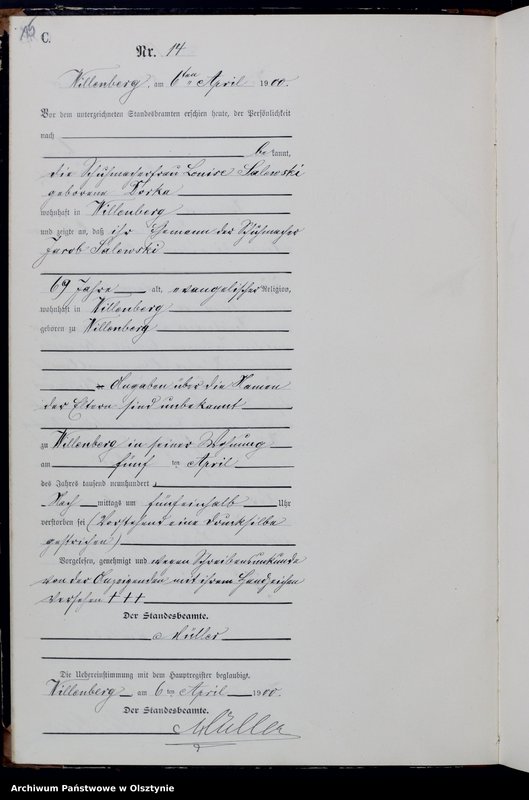 C.
Nr. 14
Willenberg, am 6ten April 1900.
Vor dem unterzeichneten Standesbeamten erschien heute, der Persönlichkeit
nach
bekannt,
die Schuhmacherfrau Louise Salewski
geborene
wohnhaft in Willenberg
und zeigte an, daß ihr Ehemann der Schuhmacher
Jacob Salewski
69 Jahre alt, evangelischer Religion,
wohnhaft in Willenberg
geboren zu Willenberg
Angaben über die Namen
der Eltern sind unbekannt
zu Willenberg in seiner Wohnung
am fünften April
des Jahres tausend neunhundert
Nachmittags um fünfeinhalb Uhr
verstorben sei (Vorstehend eine Drucksilbe
gestrichen)
Vorgelesen, genehmigt und wegen Schreibensunkunde
von der Anzeigenden mit ihrem Handzeichen
versehen + + +
Der Standesbeamte.
Müller
Die Uebereinstimmung mit dem Hauptregister beglaubigt.
Willenberg am 6ten April 1900.
Der Standesbeamte.
Müller
Archiwum Państwowe w Olsztynie